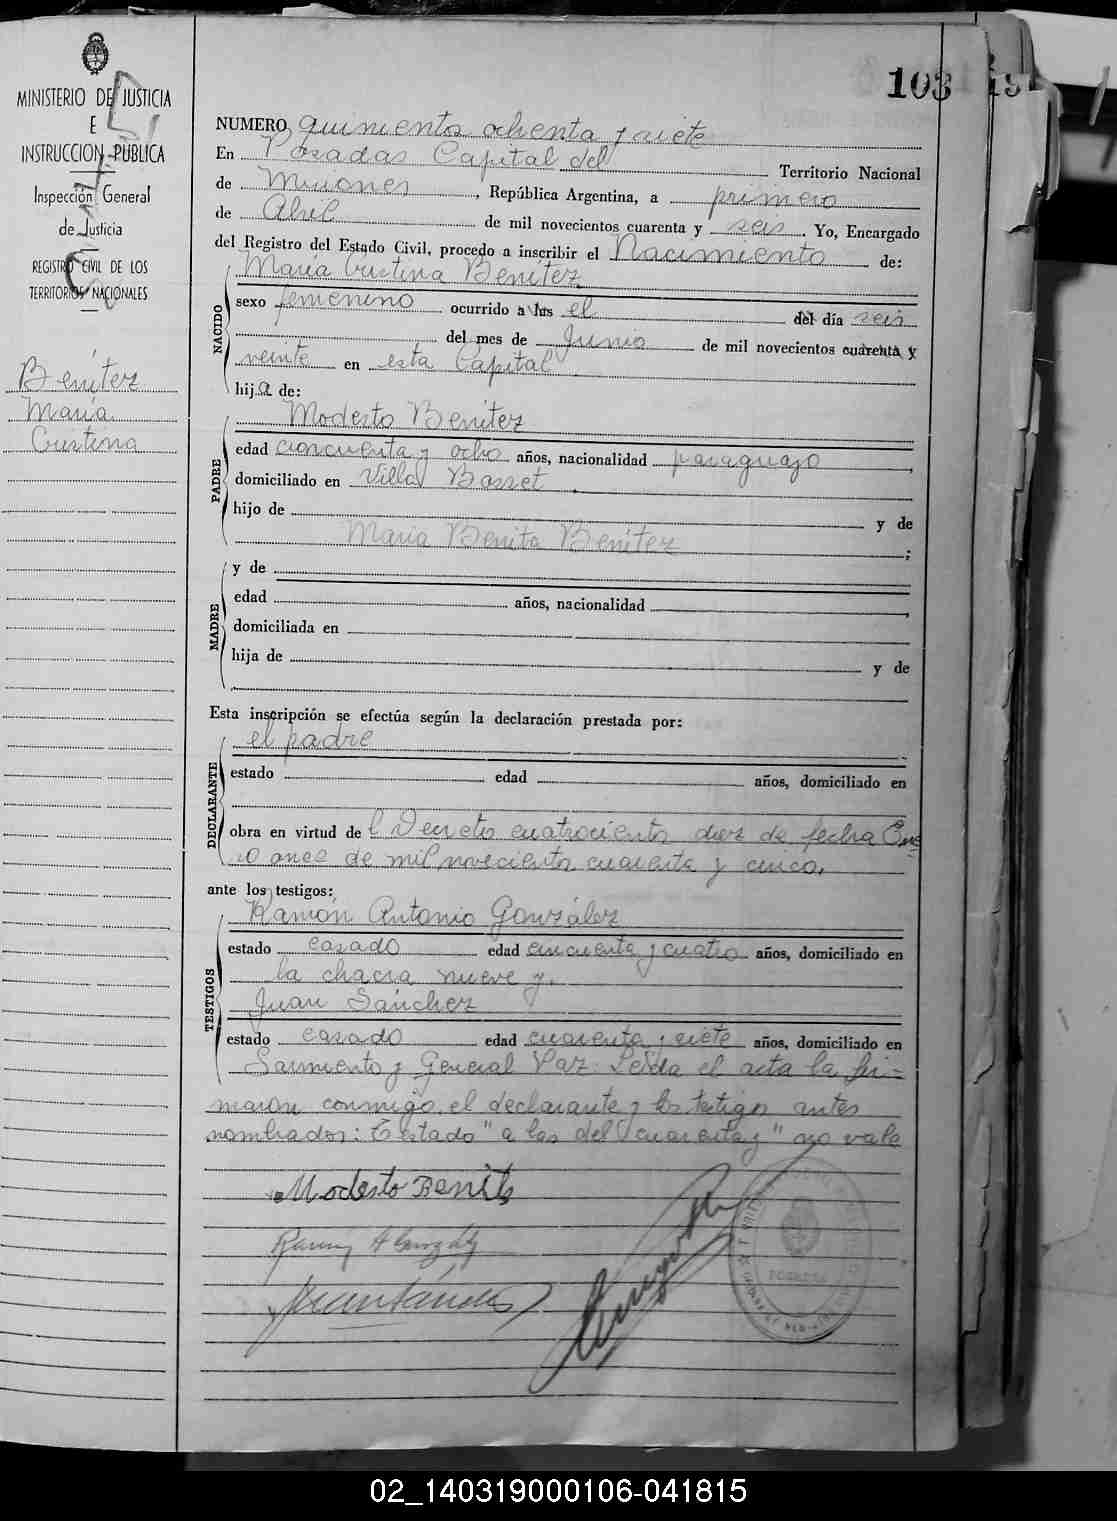 103
MINISTERIO DE JUSTICIA
E
INSTRUCCION PUBLICA
Inspección General
de Justicia
REGISTRO CIVIL DE LOS
TERRITORIOS NACIONALES
Benítez
María
Cristina
NUMERO quinientos ochenta y siete
En Posadas Capital del Territorio Nacional
de Misiones, República Argentina, a primero
de Abril de mil novecientos cuarenta y seis. Yo, Encargado
del Registro del Estado Civil, procedo a inscribir el Nacimiento de:
NACIDO
María Cristina Benítez
sexo femenino ocurrido a las el del día seis
del mes de Junio de mil novecientos cuarenta y
veinte en esta Capital
hija de:
PADRE
Modesto Benitez
edad cincuenta y ocho años, nacionalidad paraguayo,
domiciliado en Villa Bosset.
hijo de y de
María Benita Benítez;
MADRE
y de
edad años, nacionalidad ,
domiciliada en
hija de y de
Esta inscripción se efectúa según la declaración prestada por:
DECLARANTE
el padre
estado edad años, domiciliado en
obra en virtud del Decreto cuatrociento diez de fecha Ene
ro once de mil noveciento cuarenta y cinco.
ante los testigos:
TESTIGOS
Ramón Antonio González
estado casado edad cincuenta y cuatro años, domiciliado en
la chacra nueve y.
Juan Sánchez
estado casado edad cuarenta y siete años, domiciliado en
Sarmiento y General Paz. Leída el acta la fir-
maron conmigo, el declarante y los testigos antes
nombrados: Testado "a las del cuarenta y" no vale
Modesto Benits
02_140319000106-041815